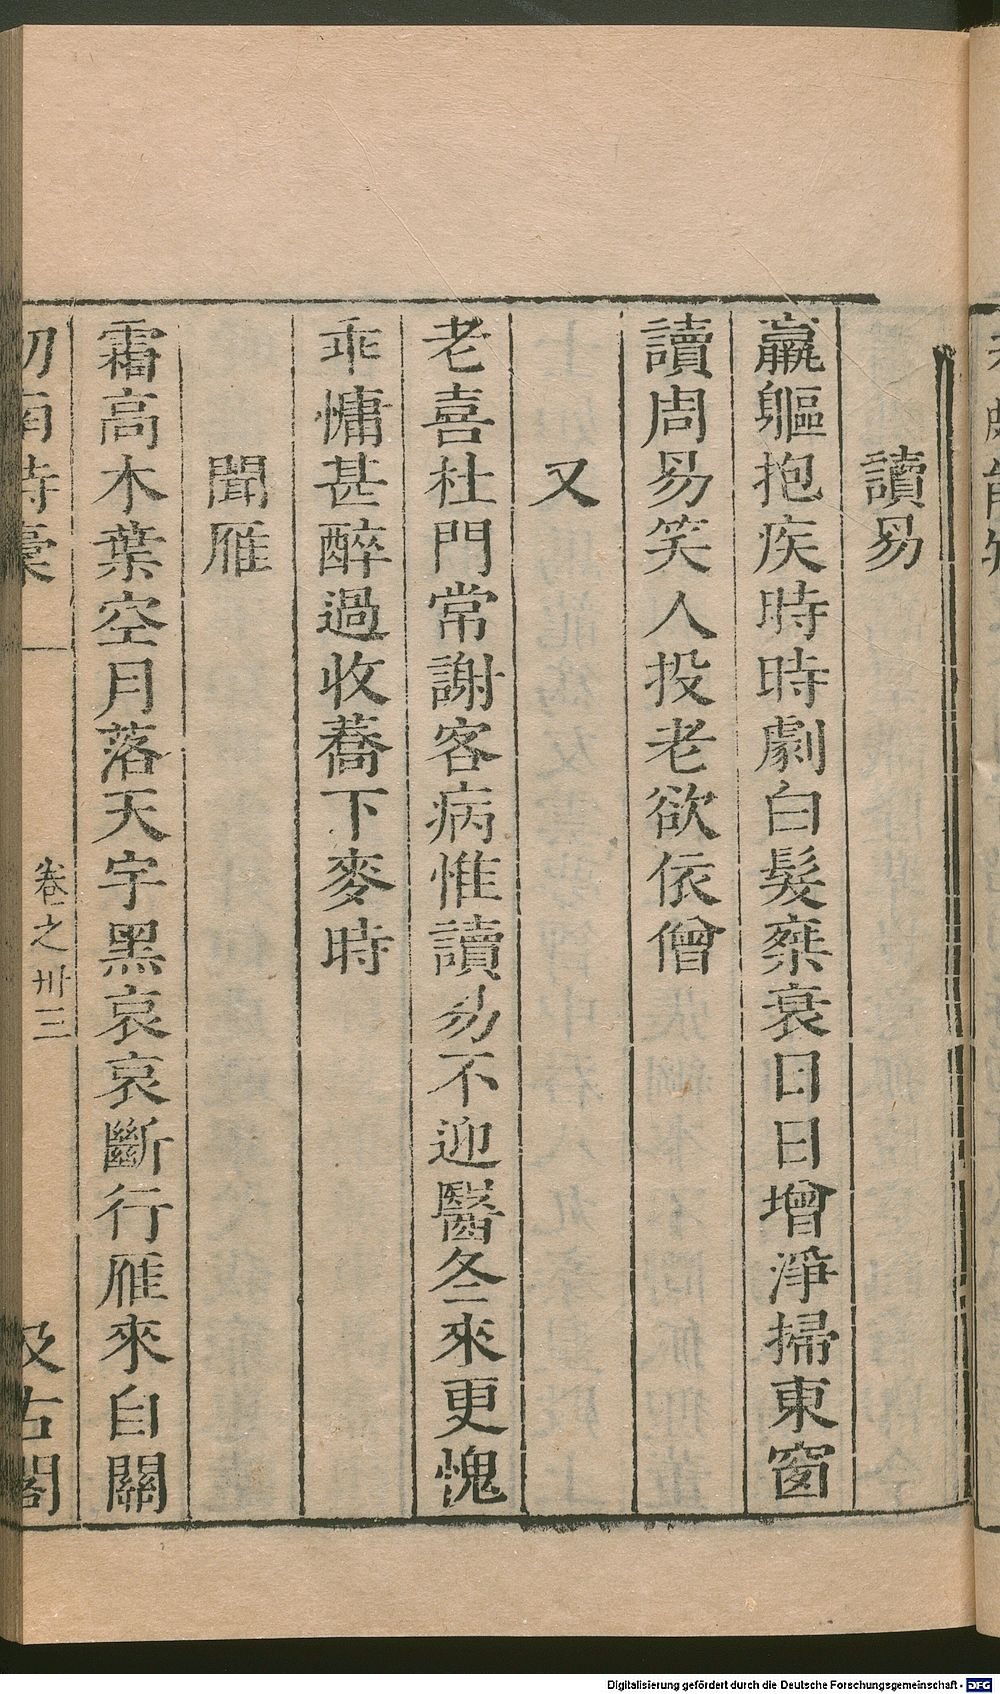 讀易
羸軀抱疾時時劇白髮乘衰日日增淨掃東窗
讀周易笑人投老欲依僧
又
老喜杜門常謝客病惟讀易不迎醫冬來更愧
乖慵甚醉過收蕎下麥時
聞雁
霜高木葉空月落天宇黑哀哀斷行雁來自關
劒南詩稾
卷之卅三
汲古閣
Digitalisierung gefördert durch die Deutsche Forschungsgemeinschaft - DFG